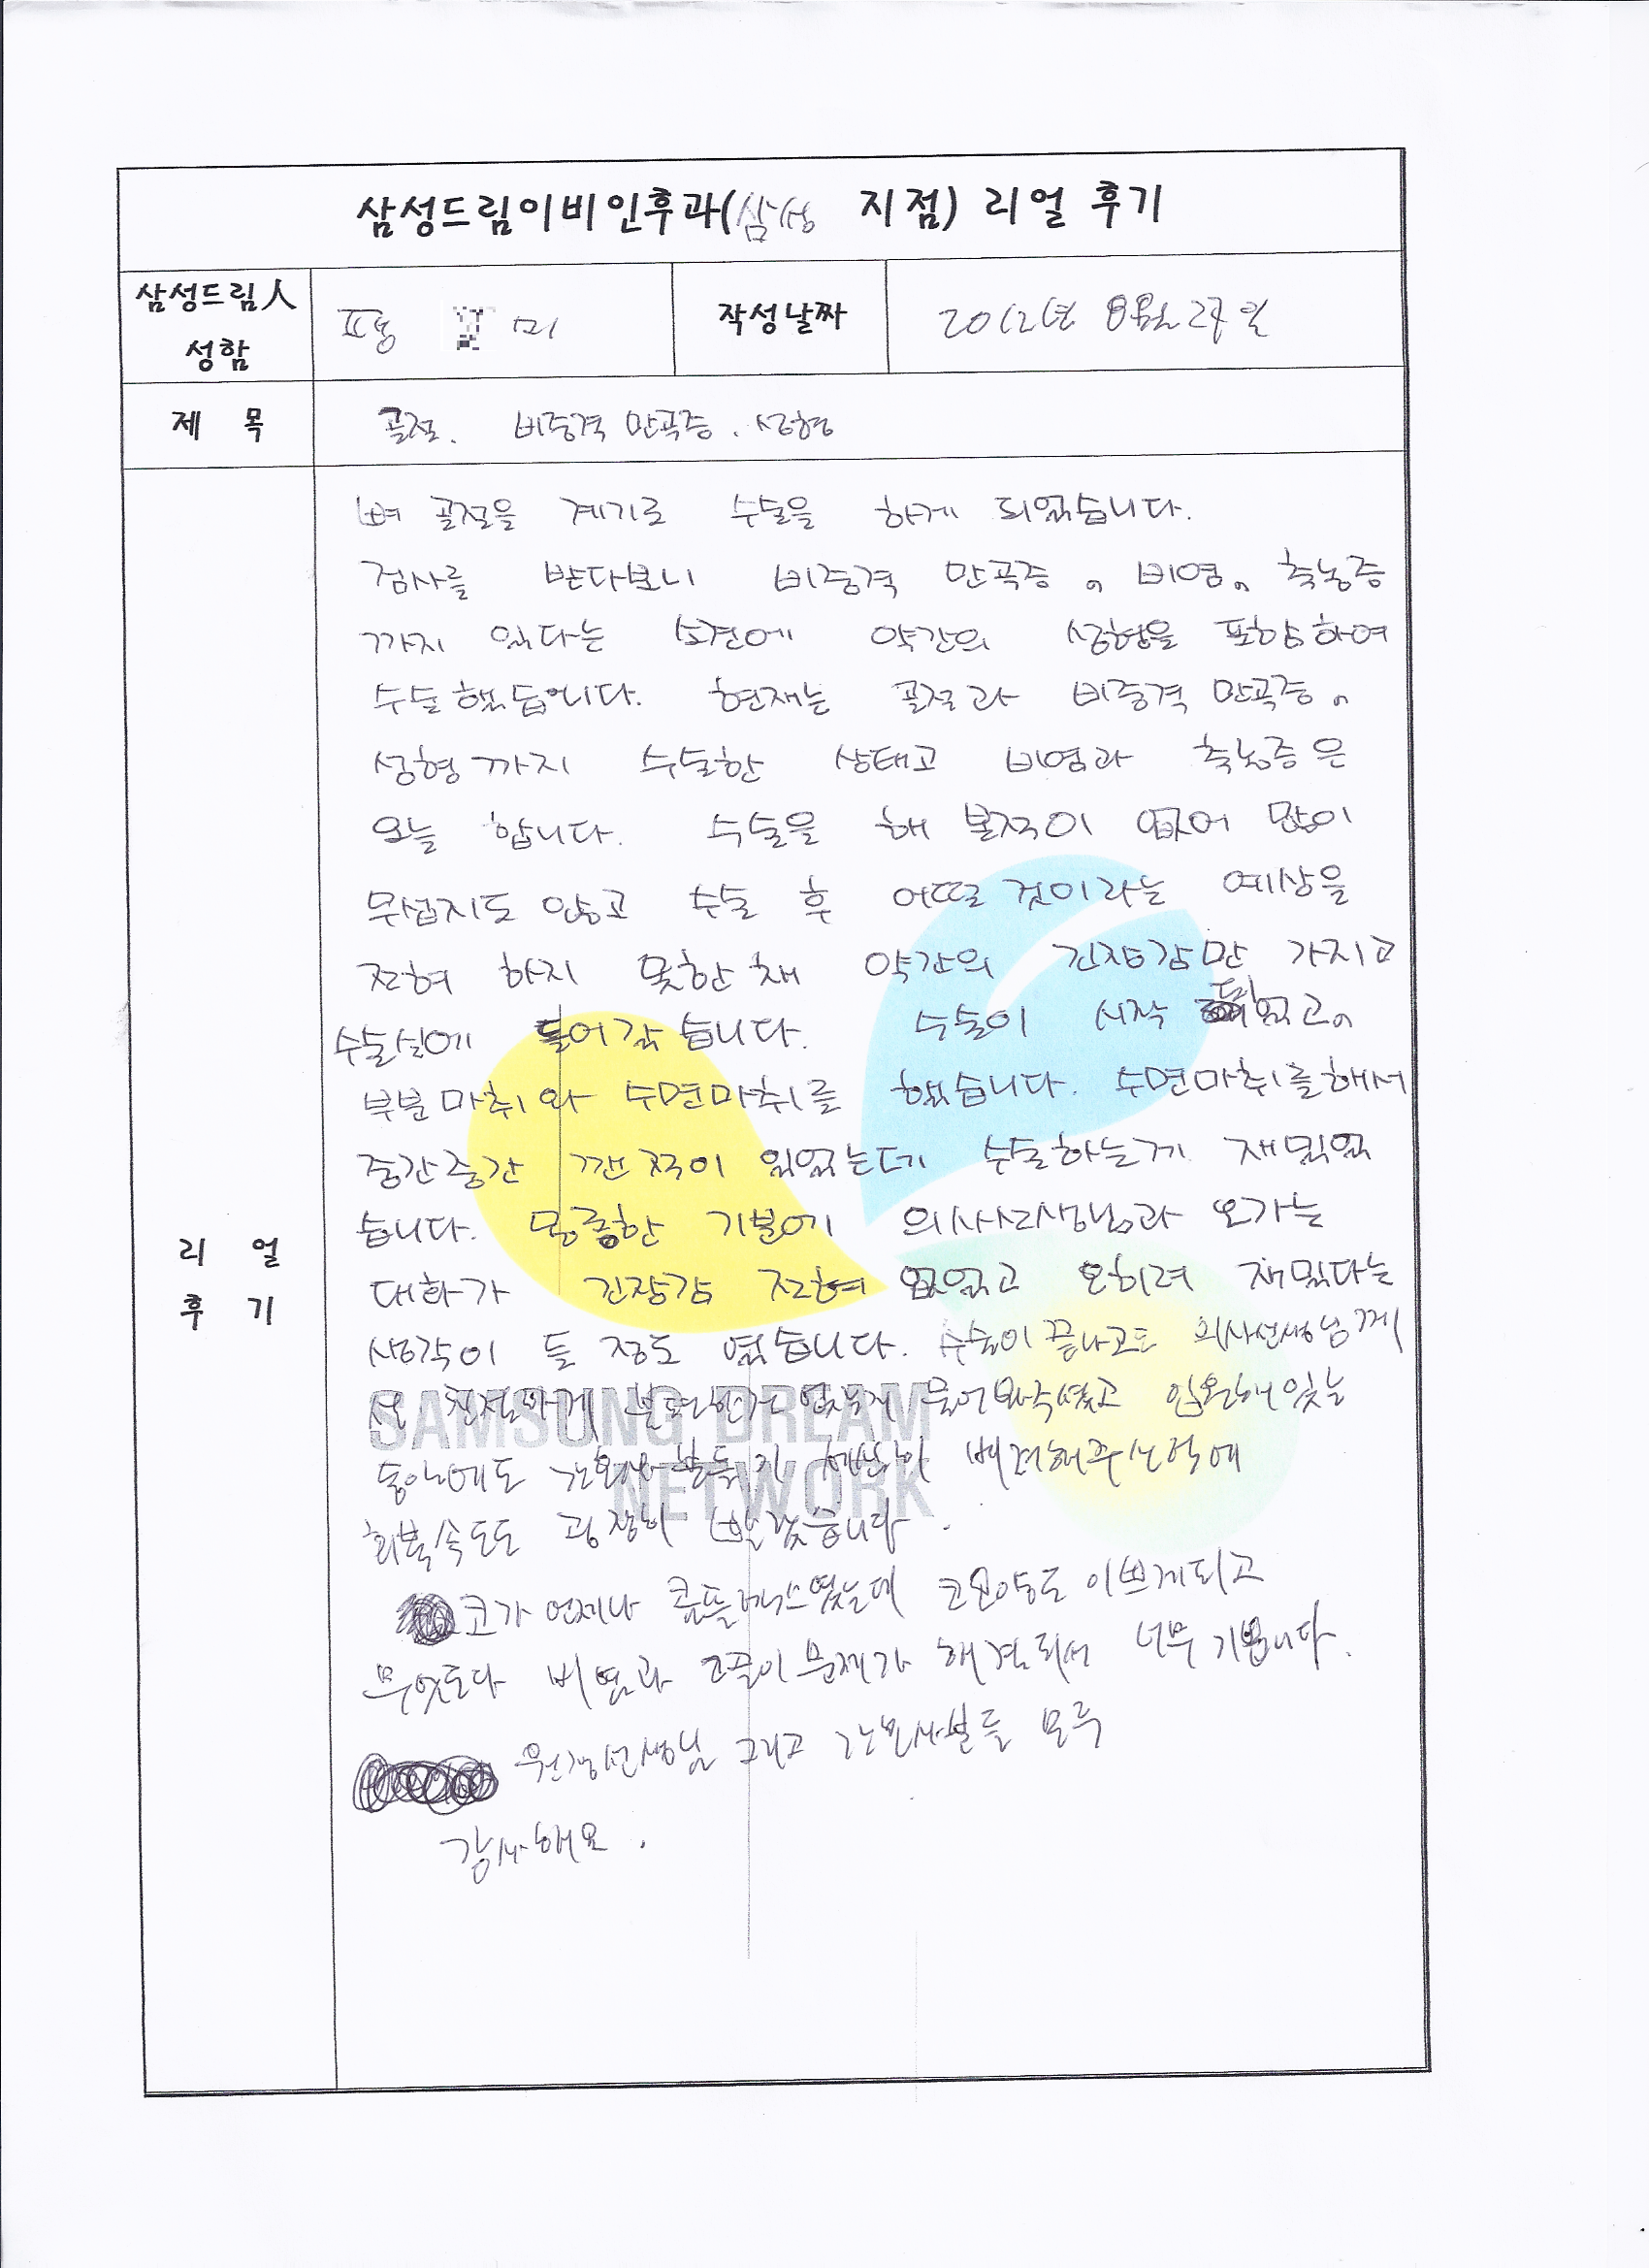 삼성드림이비인후과(삼성 지점) 리얼 후기
삼성드림人 성함
표 미
작성날짜
2012년 8월 27일
제 목
골절. 비중격 만곡증. 성형
리 얼 후 기
뼈 골절을 계기로 수술을 하게 되었습니다.
검사를 받다보니 비중격 만곡증, 비염, 축농증
까지 있다는 소견에 약간의 성형을 포함하여
수술했습니다. 현재는 골절과 비중격 만곡증,
성형까지 수술한 상태고 비염과 축농증은
오늘 합니다. 수술을 해 본적이 없어 많이
무섭지도 않고 수술 후 어떨 것이라는 예상을
전혀 하지 못한채 약간의 긴장감만 가지고
수술실에 들어갔습니다. 수술이 시작 되었고,
부분마취와 수면마취를 했습니다. 수면마취를해서
중간중간 깬 적이 있었는데 수술하는게 재밌었
습니다. 몽롱한 기분에 의사선생님과 오가는
대화가 긴장감 전혀 없었고 오히려 재밌다는
생각이 들 정도 였습니다. 수술이 끝나고도 의사선생님께
서 친절하게 불편한거 없는지 물어봐주셨고 입원해있는
동안에도 간호사분들이 배려해주신덕에
회복속도도 굉장히 빨랐습니다.
코가 언제나 콤플렉스였는데 코모양도 이쁘게되고
무엇보다 비염과 코골이문제가 해결되서 너무 기쁩니다.
원장선생님 그리고 간호사분들 모두
감사해요.
SAMSUNG DREAM
NETWORK